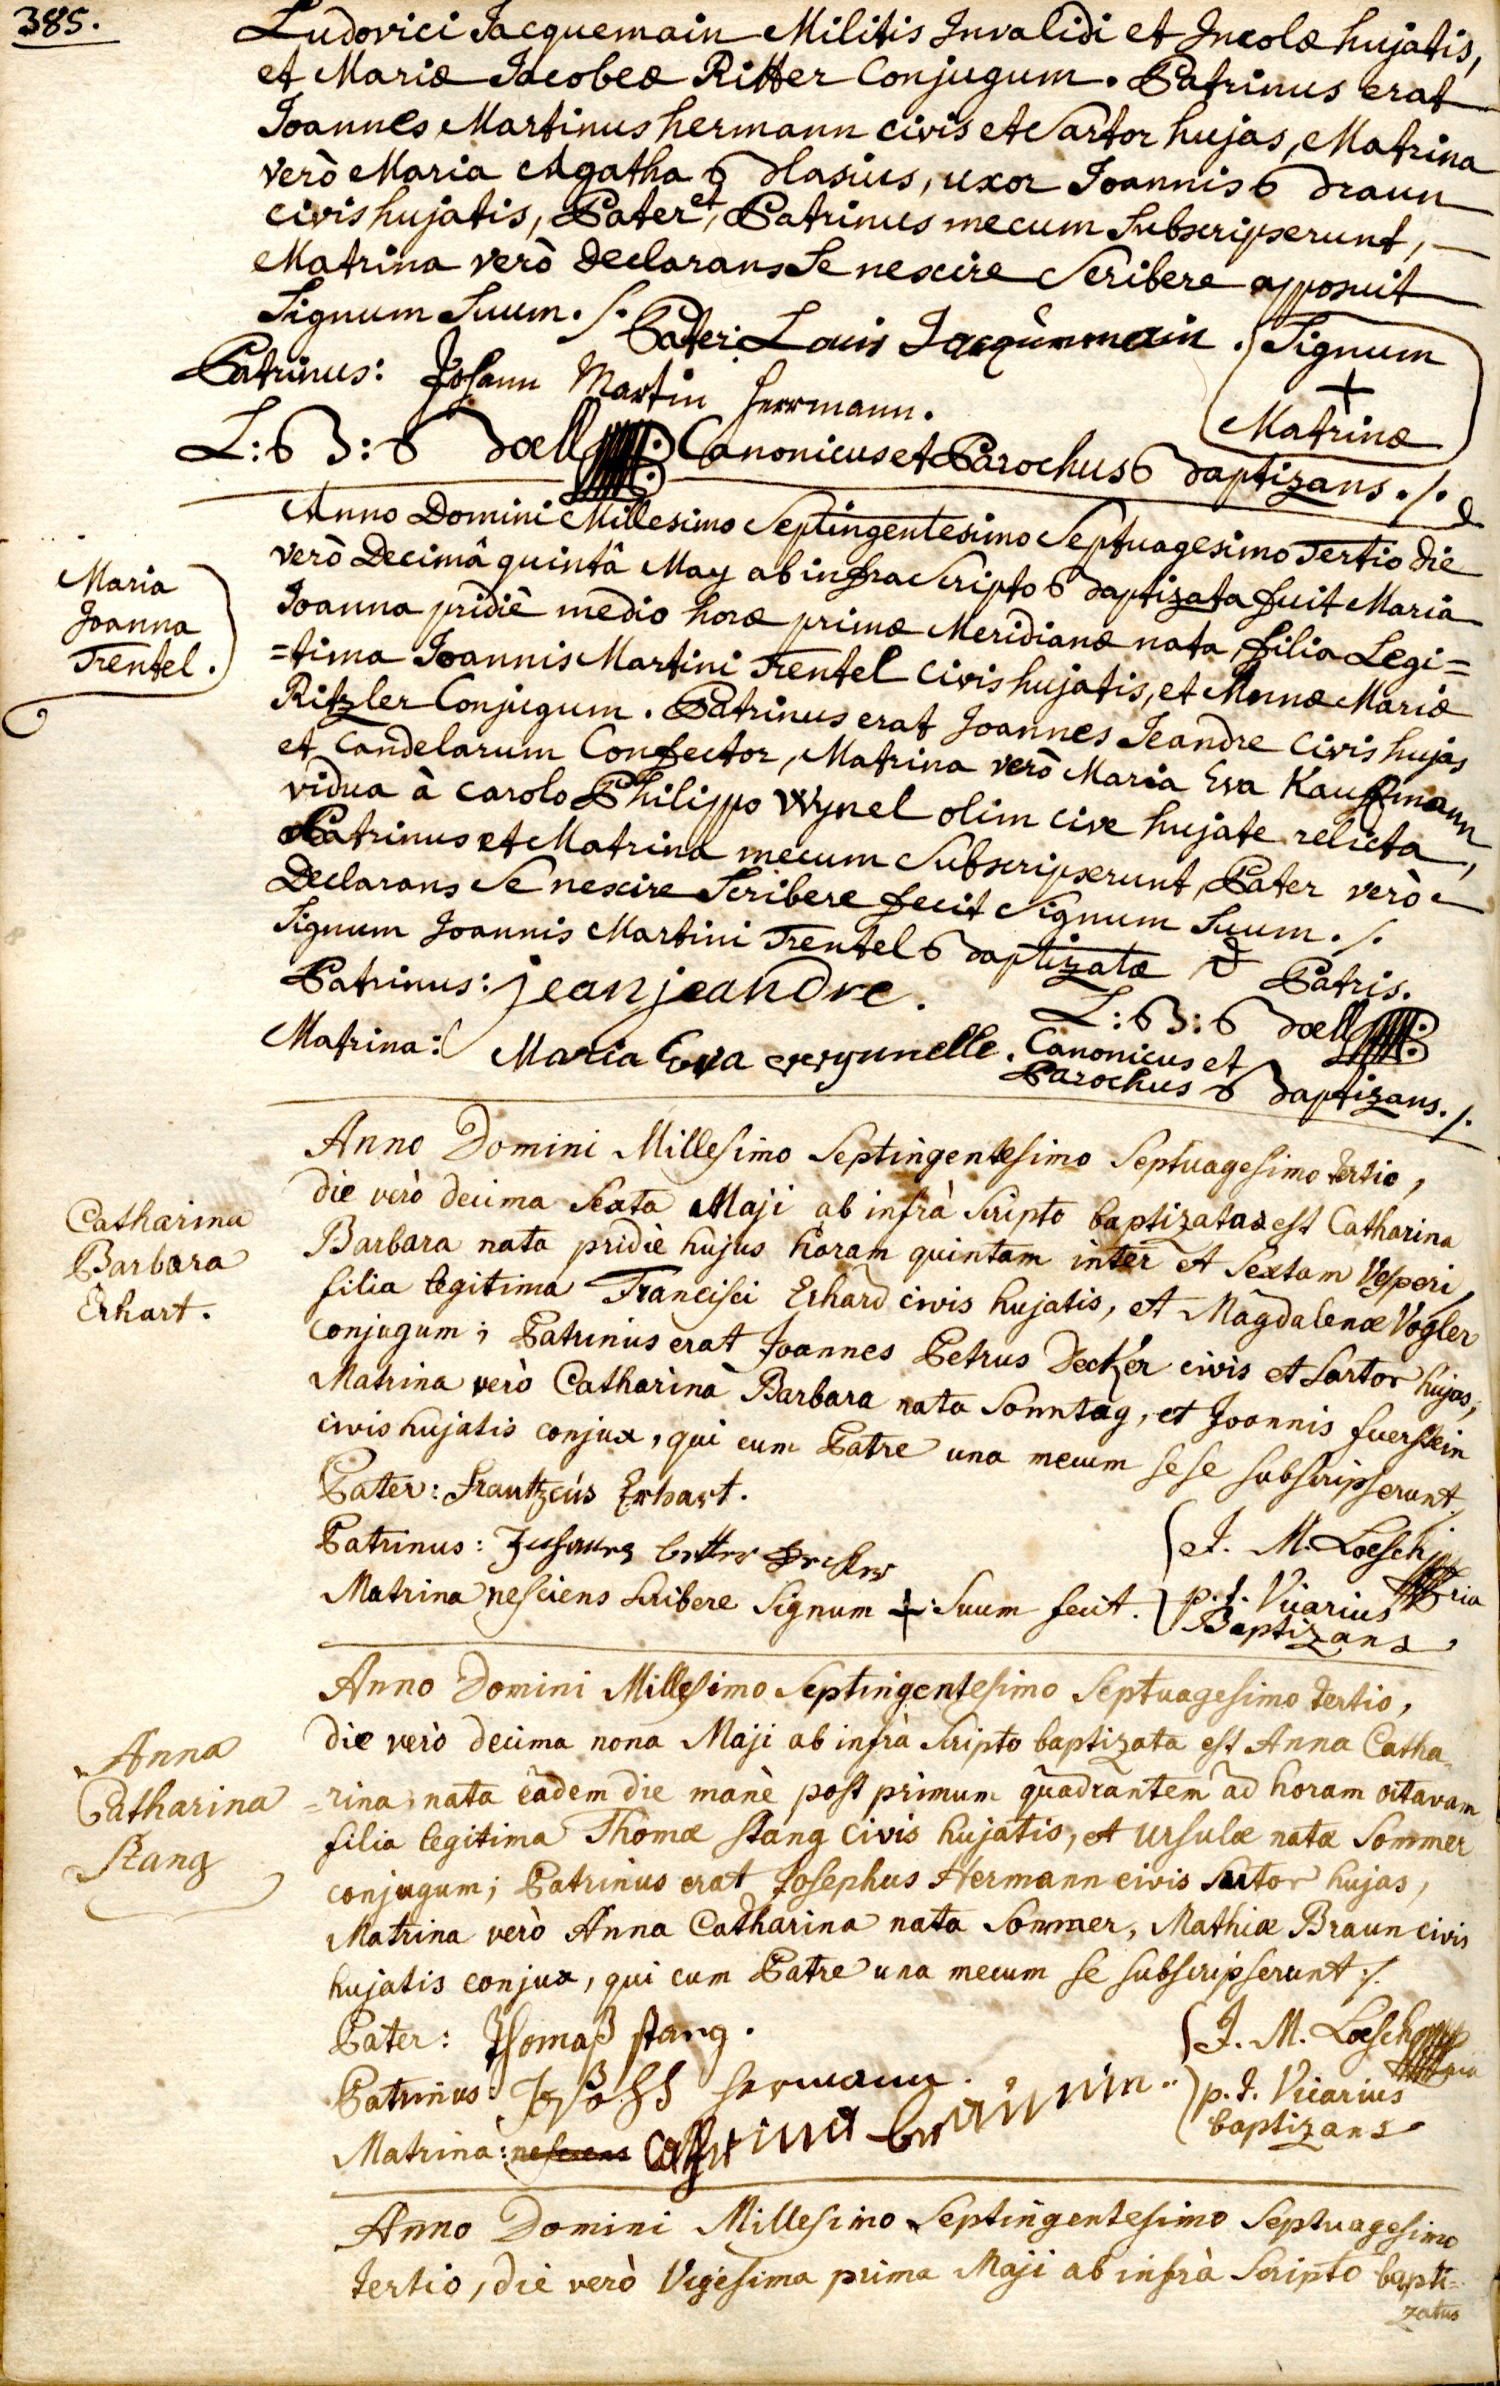 385.
Ludovici Jacquemain Militis Invalidi et Incolæ hujatis,
et Mariæ Jacobeæ Ritter Conjugum. Patrinus erat
Joannes Martinus hermann civis et Sartor hujas, Matrina
verò Maria Agatha Blasius, uxor Joannis Braun
civis hujatis, Pater et, Patrinus mecum Subscripserunt,
Matrina verò Declarans Se nescire Scribere apposuit
Signum Suum. /.
Pater: Louis Jacqùemmain.
Signum
+
Matrinæ
Patrinus: Johann Martin Herrmann.
L: B: Bœll Canonicus et Parochus Baptizans. /.
Maria
Joanna
Trentel.
Anno Domini Millesimo Septingentesimo Septuagesimo Tertio Die
verò Decimâ quintâ May ab infra Scripto Baptizata fuit Maria
Joanna pridiè medio horæ primæ Meridianæ nata, filia Legi=
=tima Joannis Martini Trentel Civis hujatis, et Annæ Mariæ
Ritzler Conjugum. Patrinus erat Joannes Jeandre Civis hujas
et Candelarum Confector, Matrina verò Maria Eva Kauffmann,
vidua à Carolo Philippo Wynel olim cive hujate relicta,
Patrinus et Matrina mecum Subscripserunt, Pater verò
Declarans Se nescire Scribere fecit Signum Suum. /.
Signum Joannis Martini Trentel Baptizatæ Patris.
Patrinus: jean jeandre.
L: B: Bœll
Matrina: Maria Eva
Canonicus et
Parochus Baptizans. /.
Catharina
Barbara
Erhart.
Anno Domini Millesimo Septingentesimo Septuagesimo tertio,
die verò decima Sexta Maji ab infrà Scripto baptizata est Catharina
Barbara nata pridiè hujus horam quintam inter et Sextam Vesperi,
filia legitima Francisci Erhard civis hujatis, et Magdalenæ Vogler
conjugum; Patrinus erat Joannes Petrus Decker civis et Sartor hujas,
Matrina verò Catharina Barbara nata Sonntag, et Joannis fuerstein
civis hujatis conjux, qui cum Patre una mecum sese subscripserunt.
Pater: Frantzcús Erhart.
Patrinus: Decker
Matrina nesciens scribere Signum + Suum fecit.
J. M. Loesch
p. t. Vicarius
Baptizans
Anna
Catharina
Stang
Anno Domini Millesimo Septingentesimo Septuagesimo tertio,
die verò decima nona Maji ab infrà Scripto baptizata est Anna Catha=
=rina, nata eâdem die manè post primum quadrantem ad horam octavam
filia legitima Thomæ Stang Civis hujatis, et Ursulæ natæ Sommer
conjugum; Patrinus erat Josephus Hermann civis Sutor hujas,
Matrina verò Anna Catharina nata Sommer, Mathiæ Braun civis
hujatis conjux, qui cum Patre una mecum se subscripserunt ./.
Pater: Thomaß stang.
J. M. Loesch
Patrinus: hermann.
p. t. Vicarius
baptizans
Matrina: nesciens
Anno Domini Millesimo Septingentesimo Septuagesimo
tertio, die verò Vigesima prima Maji ab infrà Scripto bapti=
zatus